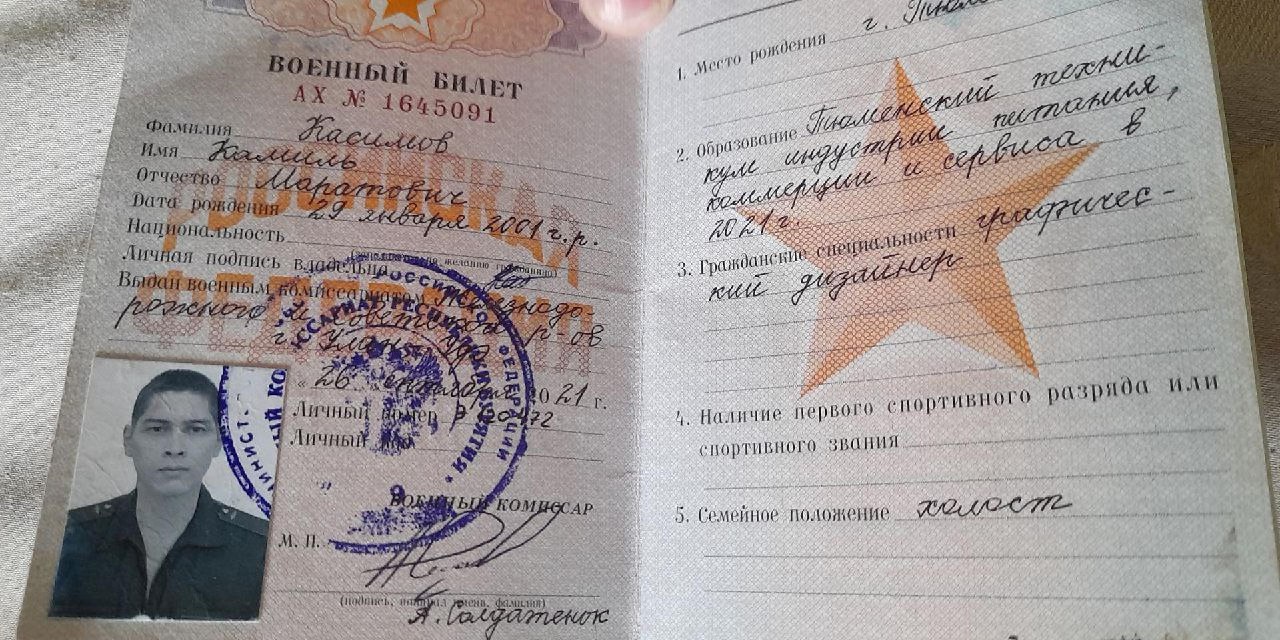 ВОЕННЫЙ БИЛЕТ
АХ № 1645091
Фамилия Касимов
Имя Камиль
Отчество Маратович
Дата рождения 29 января 2001 г.р.
Национальность
Личная подпись владельца
Выдан военным комиссариатом Железнодо-
рожного и Советского р-ов
г. Улан-Удэ
"26" 2021 г.
Личный номер
Личный
ВОЕННЫЙ КОМИССАР
М. П.
(подпись, инициал имени, фамилия)
А. Солдатенок
РОССИЙСКАЯ
ФЕДЕРАЦИЯ
1. Место рождения г.
2. Образование Тюменский техни-
кум индустрии питания,
коммерции и сервиса в
2021 г.
3. Гражданские специальности графичес-
кий дизайнер
4. Наличие первого спортивного разряда или
спортивного звания
5. Семейное положение холост